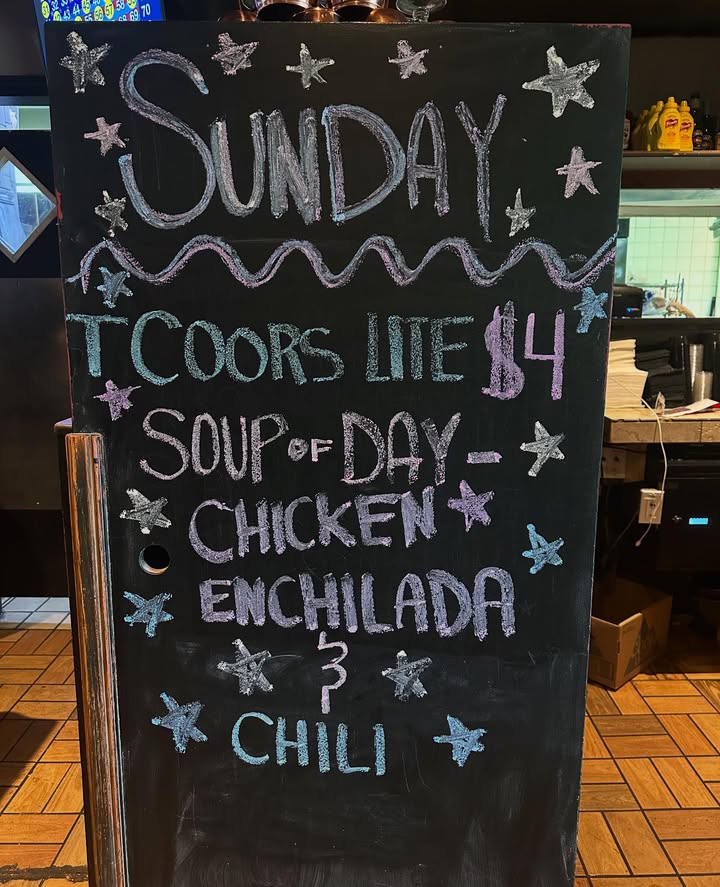 SUNDAY
T COORS LITE $4
SOUP OF DAY -
CHICKEN
ENCHILADA
&
CHILI